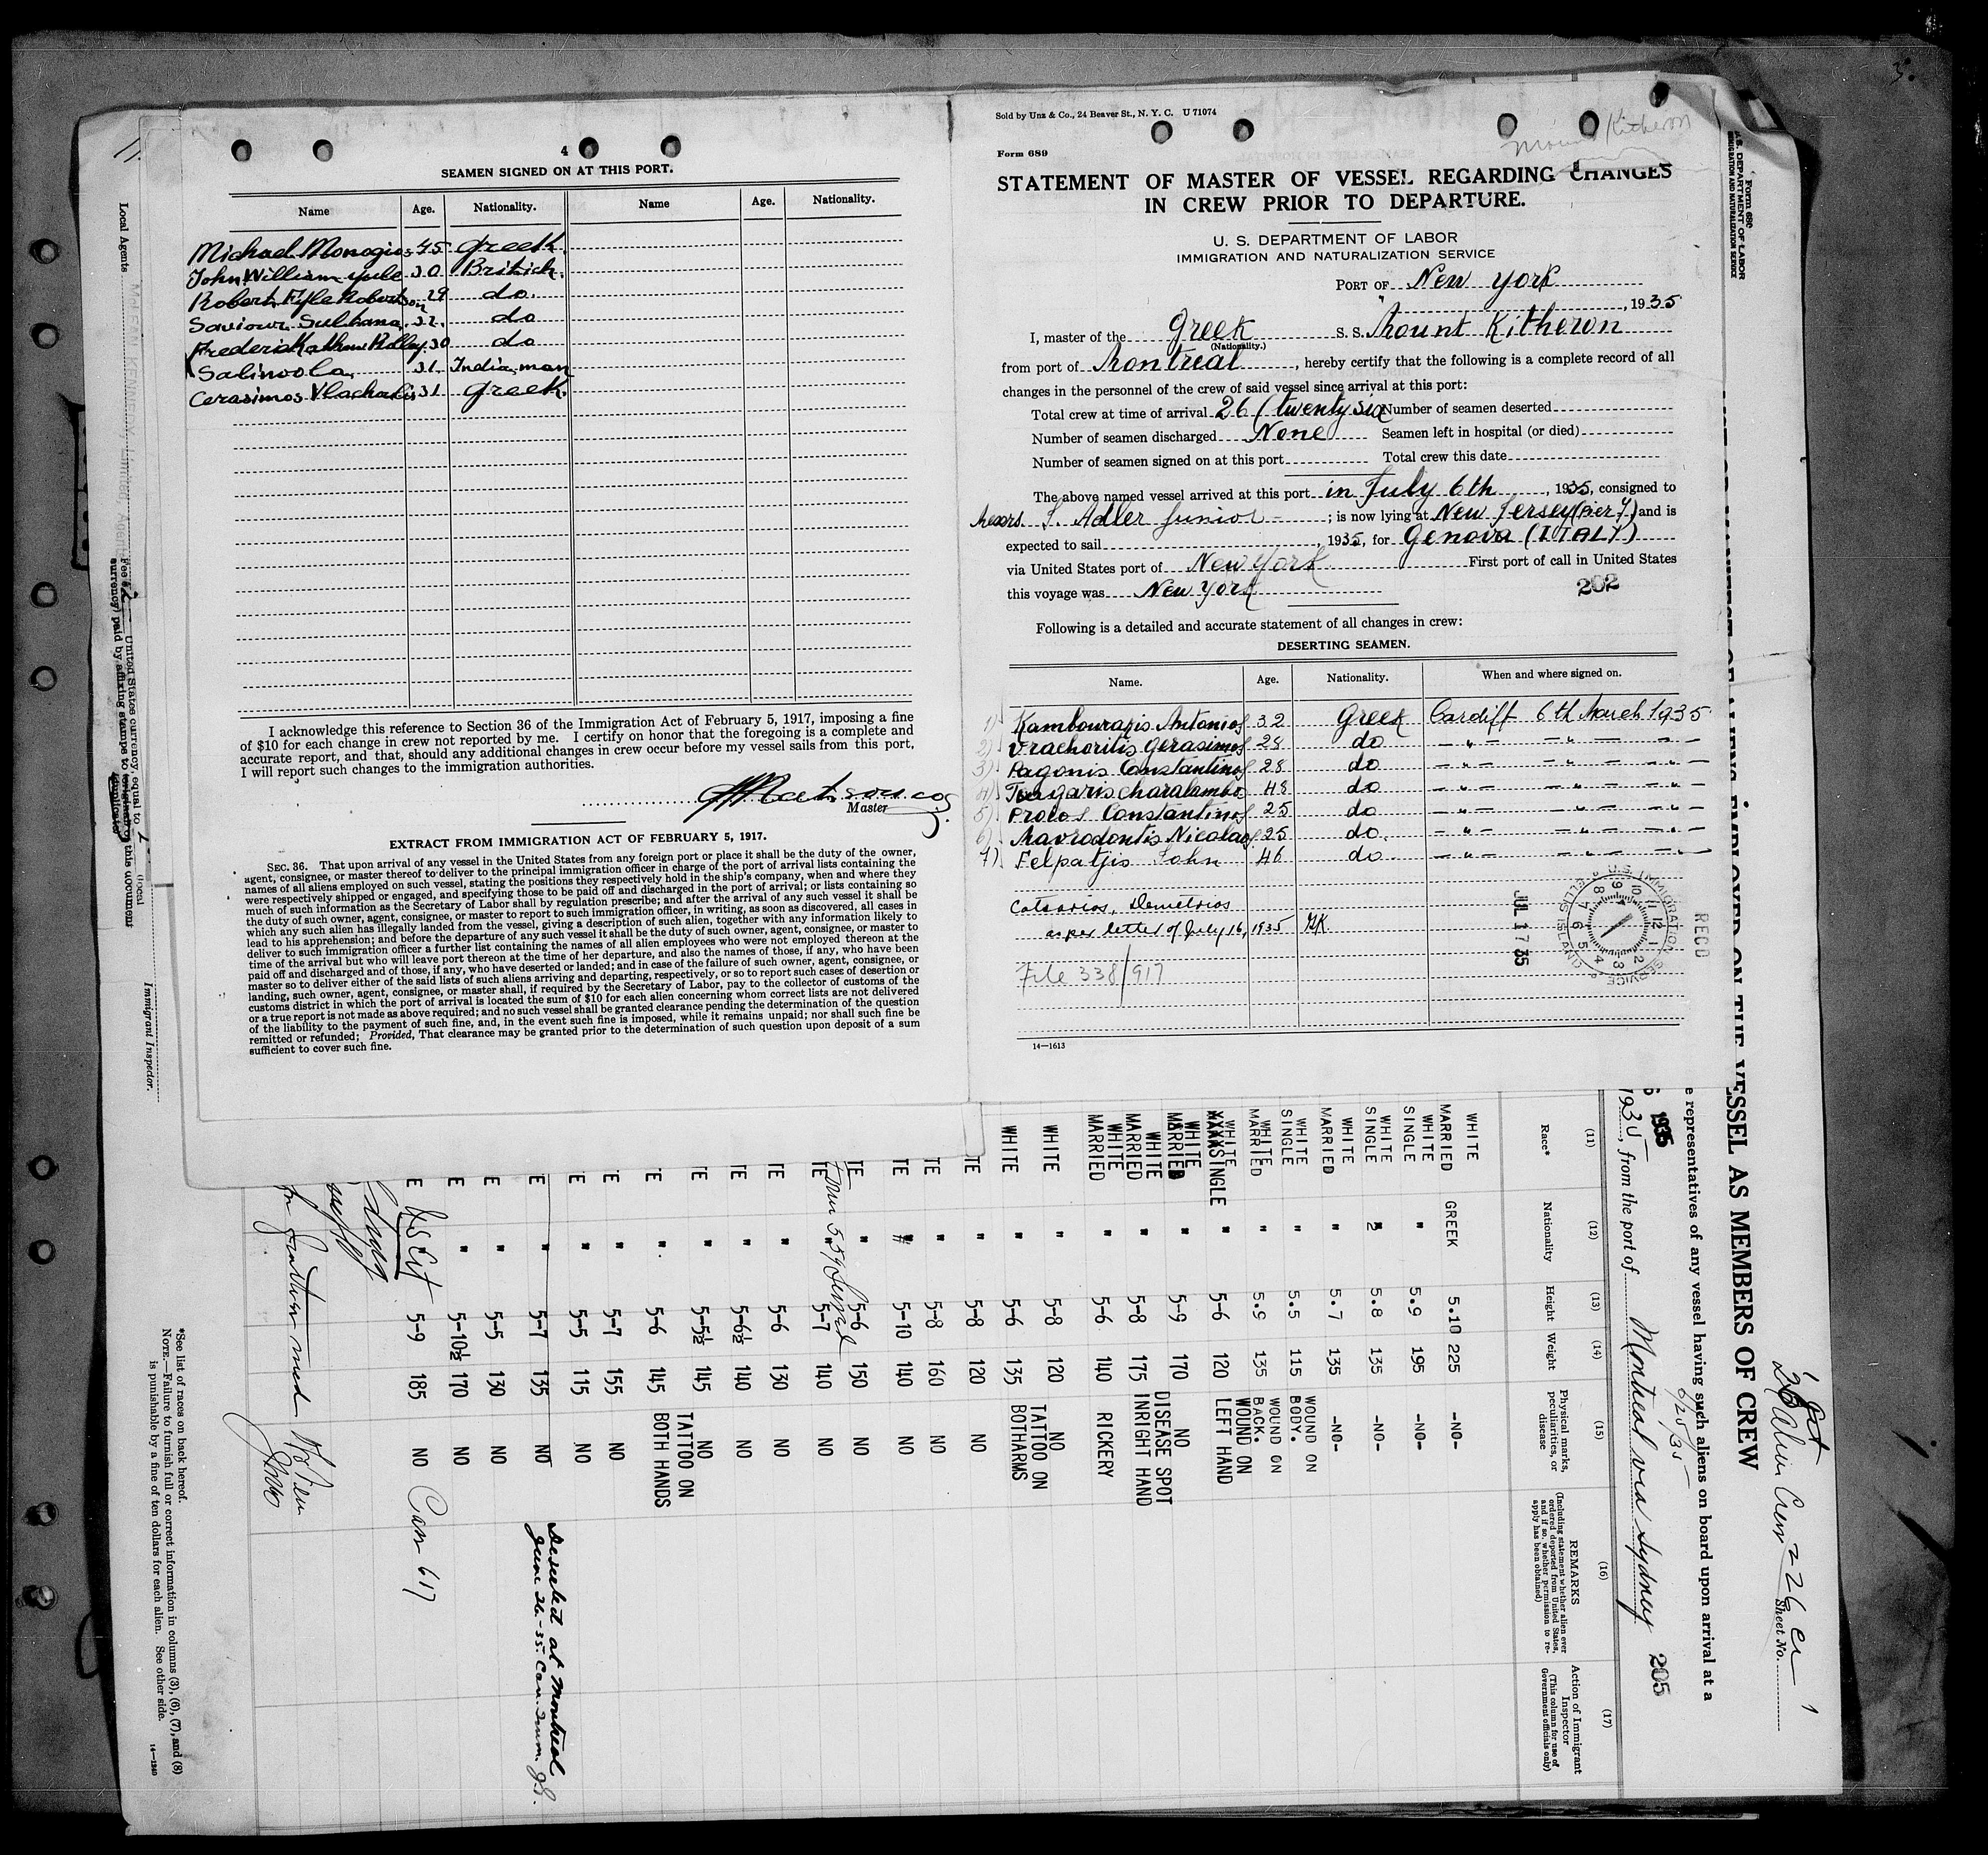 4
SEAMEN SIGNED ON AT THIS PORT.
Name Age. Nationality. Name Age. Nationality.
Michael Monogios 45 Greek.
John William Yule 30 British.
Robert Fyfe Robertson 29 do.
Saviour Sultana. 32. do
Frederick Mathew Polley. 30 do
Salimoola 31. Indiaman
Cerasimos Vlachakis 31 Greek.
I acknowledge this reference to Section 36 of the Immigration Act of February 5, 1917, imposing a fine
of $10 for each change in crew not reported by me. I certify on honor that the foregoing is a complete and
accurate report, and that, should any additional changes in crew occur before my vessel sails from this port,
I will report such changes to the immigration authorities.
Master
EXTRACT FROM IMMIGRATION ACT OF FEBRUARY 5, 1917.
SEC. 36. That upon arrival of any vessel in the United States from any foreign port or place it shall be the duty of the owner,
agent, consignee, or master thereof to deliver to the principal immigration officer in charge of the port of arrival lists containing the
names of all aliens employed on such vessel, stating the positions they respectively hold in the ship's company, when and where they
were respectively shipped or engaged, and specifying those to be paid off and discharged in the port of arrival; or lists containing so
much of such information as the Secretary of Labor shall by regulation prescribe; and after the arrival of any such vessel it shall be
the duty of such owner, agent, consignee, or master to report to such immigration officer, in writing, as soon as discovered, all cases in
which any such alien has illegally landed from the vessel, giving a description of such alien, together with any information likely to
lead to his apprehension; and before the departure of any such vessel it shall be the duty of such owner, agent, consignee, or master to
deliver to such immigration officer a further list containing the names of all alien employees who were not employed thereon at the
time of the arrival but who will leave port thereon at the time of her departure, and also the names of those, if any, who have been
paid off and discharged and of those, if any, who have deserted or landed; and in case of the failure of such owner, agent, consignee, or
master so to deliver either of the said lists of such aliens arriving and departing, respectively, or so to report such cases of desertion or
landing, such owner, agent, consignee, or master shall, if required by the Secretary of Labor, pay to the collector of customs of the
customs district in which the port of arrival is located the sum of $10 for each alien concerning whom correct lists are not delivered
or a true report is not made as above required; and no such vessel shall be granted clearance pending the determination of the question
of the liability to the payment of such fine, and, in the event such fine is imposed, while it remains unpaid; nor shall such fine be
remitted or refunded; Provided, That clearance may be granted prior to the determination of such question upon deposit of a sum
sufficient to cover such fine.
Sold by Unz & Co., 24 Beaver St., N. Y. C. U 71074
Mount Kitheron
Form 689
STATEMENT OF MASTER OF VESSEL REGARDING CHANGES
IN CREW PRIOR TO DEPARTURE.
U. S. DEPARTMENT OF LABOR
IMMIGRATION AND NATURALIZATION SERVICE
PORT OF New York
, 1935
I, master of the Greek S. S. Mount Kitheron
(Nationality.)
from port of Montreal, hereby certify that the following is a complete record of all
changes in the personnel of the crew of said vessel since arrival at this port:
Total crew at time of arrival 26 (twenty six Number of seamen deserted
Number of seamen discharged None Seamen left in hospital (or died)
Number of seamen signed on at this port Total crew this date
The above named vessel arrived at this port in July 6th, 1935, consigned to
Messrs. S. Adler Junior - ; is now lying at New Jersey (Pier 7) and is
expected to sail , 1935, for Genova (ITALY)
via United States port of New York First port of call in United States
this voyage was New York 202
Following is a detailed and accurate statement of all changes in crew:
DESERTING SEAMEN.
Name. Age. Nationality. When and where signed on.
1) Kambourazis Antonios 32 Greek Cardiff 6th March 1935
2) Vrachoritis Gerasimos 28 do — " — — " — — " —
3) Pagonis Constantinos 28 do — " — — " — — " —
4) Tungaris Charalambos 48 do — " — — " — — " —
5) Protos Constantinos 25 do — " — — " — — " —
6) Mavrodontis Nicolaos 25 do. — " — — " — — " —
7) Felpatjis John 46 do — " — — " — — " —
Catsarios, Demetrios
as per letter of July 16, 1935 GK
File 338/917
JUL 17 35
REC'D
U.S. IMMIGRATION SERVICE
ELLIS ISLAND
14—1613
Form 680
U. S. DEPARTMENT OF LABOR
IMMIGRATION AND NATURALIZATION SERVICE
EMPLOYED ON THE VESSEL AS MEMBERS OF CREW
Sheet No.
e representatives of any vessel having such aliens on board upon arrival at a
6/20/35
6 1935
1935, from the port of Montreal via Sydney 205
(11) (12) (13) (14) (15) (16) (17)
Race* Nationality Height Weight Physical marks, peculiarities, or disease
REMARKS
(Including statement whether alien ever ordered deported from United States, and if so, whether permission to reapply has been obtained)
Action of Immigrant Inspector
(This column for use of Government officials only)
WHITE MARRIED GREEK 5.10 225 -NO-
WHITE SINGLE " 5.9 195 -NO-
WHITE SINGLE " 5.8 135 -NO-
WHITE MARRIED " 5.7 135 -NO-
WHITE SINGLE " 5.5 115 WOUND ON BODY.
WHITE MARRIED " 5.9 135 WOUND ON BACK.
WHITE XXXXSINGLE " 5-6 120 WOUND ON LEFT HAND
WHITE MARRIED " 5-9 170 NO
WHITE MARRIED " 5-8 175 DISEASE SPOT INRIGHT HAND
WHITE MARRIED " 5-6 140 RICKERY
WHITE " 5-8 120 NO
WHITE " 5-6 135 TATTOO ON BOTHARMS
TE " 5-8 120 NO
TE " 5-8 160 NO
TE " 5-10 140 NO
TE " 5-6 150 NO
TE " 5-7 140 NO
E " 5-6 130 NO
E " 5-6½ 140 NO
E " 5-5½ 145 NO
E " 5-6 145 TATTOO ON BOTH HANDS
E " 5-7 155 NO
E " 5-5 115 NO
E " 5-7 135 NO Deserted at Montreal June 26-35. Can. Imm.
E " 5-5 130 NO
E " 5-10½ 170 NO
E US Cit 5-9 185 NO Can 617
*See list of races on back hereof.
NOTE.—Failure to furnish full or correct information in columns (3), (6), (7), and (8)
is punishable by a fine of ten dollars for each alien. See other side.
14—1240
11.
Local Agents
McLEAN KENNEDY Limited, Agents
United States currency, equal to
currency) paid by affixing stamps to
this document
(local
Immigrant Inspector.